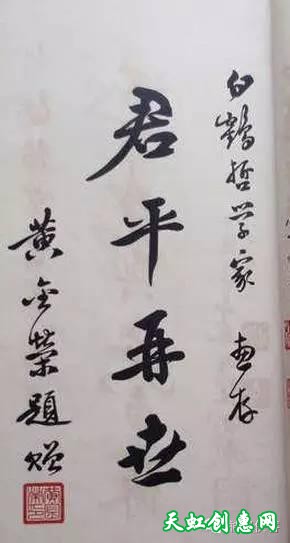 白鹤哲学家 惠存
君平再世
黄金荣题赠
天虹创意网